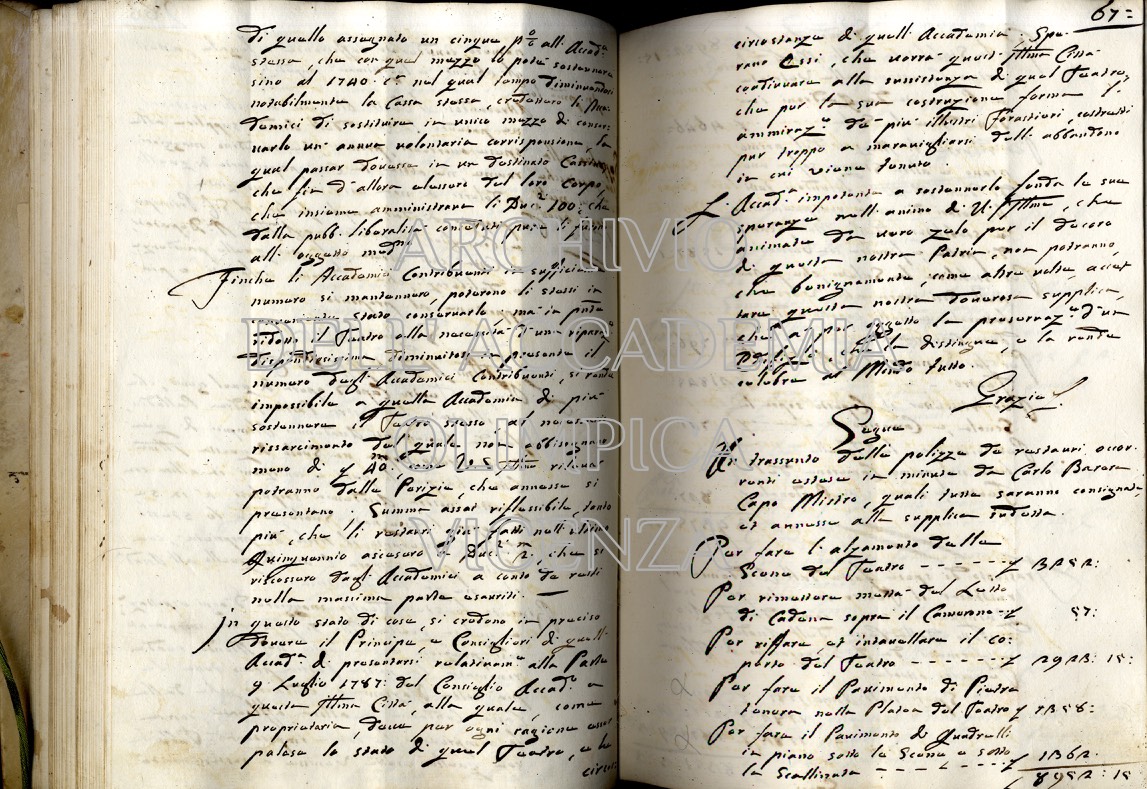 di quello assegnato un cinque p% all'Accad.a
stessa, che con qual mezzo lo poté sostennere
sino al 1740: nel qual tempo diminuendosi
notabilmente la Cassa stessa, credettero li Acca-
demici di sostituire in unico mezzo di conser-
varlo un' annua volontaria corrisponsione, la
qual passar dovesse in un destinato Cassiere
che fin d'allora elessero dal loro Corpo,
che insieme amministrava li Duc.i 100: che
dalla pubb. liberalità
all' oggetto med.mo
Finche li Accademici Contribuenti in sufficiente
numero si mantennero, poterono li stessi in
conveniente stato conservarlo, ma in p.nte
ridotto il Teatro alla necessità d'una riparaz.
dispendiosissima, diminuitosi in presente il
numero degl' Accademici Contribuenti, si rende
impossibile a quella Accademia di più
sostennere il Teatro stesso al necess.o
rissarcimento del quale non abbisognere
meno di 40: come VV. SS. Ill.me rilevar
potranno dalla Perizia, che annessa si
presentano. Summa assai riflessibile, tanto
più, che li restauri già fatti nell'ultimo
Quinquennio ascesero a Duc.i 2, che si
riscossero dagl' Accademici a conto de resti
nella massima parte esauriti. —
In questo stato di cose, si credono in preciso
dovere il Principe, e Consiglieri di quell'
Accad.a di presentarsi relativam.e alla Parte
9 Luglio 1787: del Consiglio Accad.o a
questa Ill.ma Città, alla quale, come
proprietaria, deve per ogni ragione esser
palese lo stato di qual Teatro, e le
circos:
67=
circostanze di quell' Accademia. Spe-
rano Essi, che vorrà quest' Ill.ma Città
coadiuvare alla sussistenza di qual Teatro,
che per la sua costruzione forma l'
ammiraz.e de più illustri Forastieri, costretti
pur troppo a maravigliarsi dell' abbandono
in cui viene tenuto.
L' Accad.a impotente a sostennerlo fonda le sue
speranze nell' animo di VV. SS. Ill.me, che
animate da vero zelo per il decoro
di questa nostra Patria, non potranno,
che benignamente, come altre volte, accet-
tare questa nostra doverosa supplica,
che ha per oggetto la preservaz.e d'un
Edifizio, che la distingue, e la rende
celebre al Mondo tutto.
Grazie
Segue
Un trassunto delle polizze de restauri occor-
renti estese in minuta da Carlo Barera
Capo Mistro, quali tutte saranno consignate
et annesse alla supplica sudetta.
Per fare l'alzamento della
Scena del Teatro - - - - - -
Per rimettere metà del Letto
di Cadene sopra il Camerone 57:
Per riffare, et intavellare il co:
perto del Teatro - - - - - - 2922: 15:
Per fare il Pavimento di Pietra
tenera nella Platea del Teatro 1258:
Per fare il Pavimento de Quadrelli
in piano sotto la Scena e sotto
la Scallinata - - - - - 1362.
8952: 15
ARCHIVIO
DELL'ACCADEMIA
OLIMPICA
VICENZA